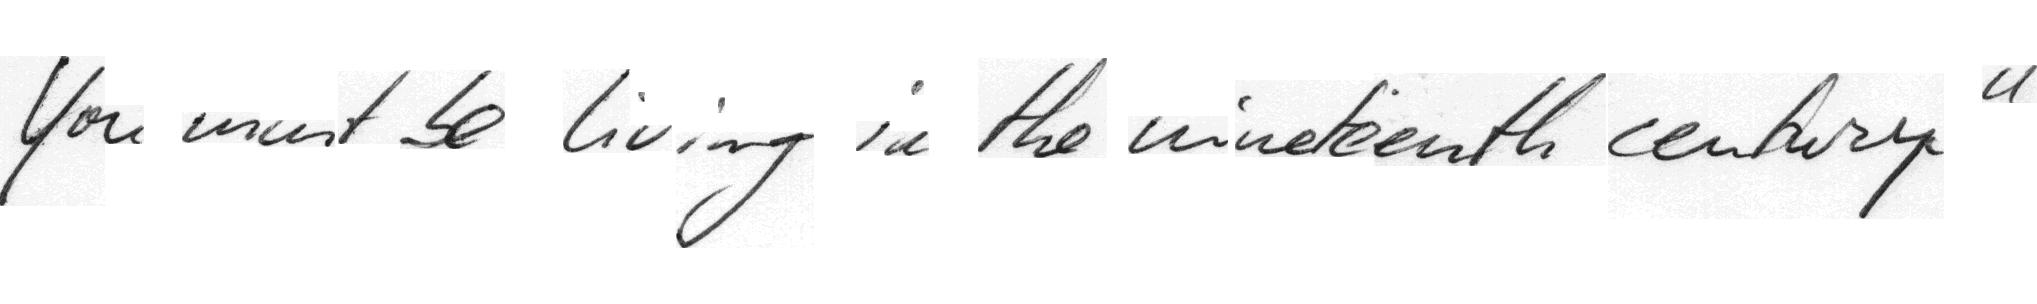 You must be living in the nineteenth century "